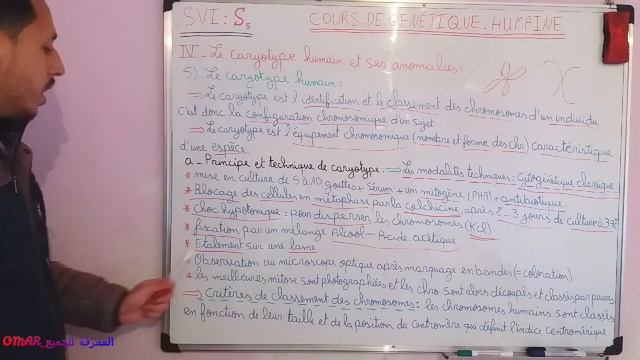 SVI: S₅
COURS DE GÉNÉTIQUE HUMAINE
IV- Le caryotype humain et ses anomalies:
5) Le caryotype humain:
⇒ Le caryotype est l'identification et le classement des chromosomes d'un individu
c'est donc la configuration chromosomique d'un sujet
⇒ Le caryotype est l'équipement chromosomique (nombre et forme des chr) caractéristique
d'une espèce.
a- Principe et technique de caryotype. ⇒ Les modalités techniques: Cytogénétique classique:
* mise en culture de 5 à 10 gouttes + Sérum + un mitogène (PHA) + antibiotique
* Blocage des cellules en métaphase par la colchicine, après 2-3 jours de culture à 37°
* choc hypotonique: pour disperser les chromosomes (KCl)
* fixation par un mélange Alcool-Acide acétique
* Etalement sur une lame
Observation au microscope optique après marquage en bandes (= coloration)
* les meilleures mitose sont photographiées et les chro sont alors découpés et classés par paires
⇒ Critères de classement des chromosomes: les chromosomes humains sont classés
en fonction de leur taille et de la position du centromère qui définit l'indice centromérique.
OMAR_المعرفة للجميع